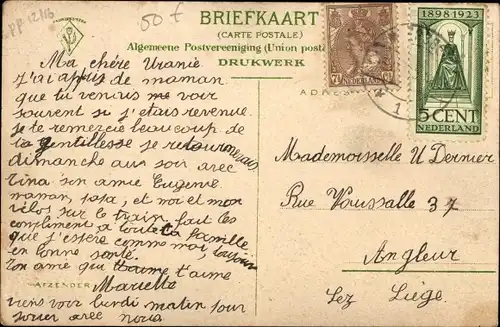 pp 12/16
50 €
BRIEFKAART
(CARTE POSTALE)
Algemeene Postvereeniging (Union post
DRUKWERK
ADRES
1898-1923
5 CENT
NEDERLAND
7½
NEDERLAND
Ma, chère Uranie
J'ai apris de maman
que tu venais me voir
souvent si j'etais revenue
je te remercie beaucoup de
ta gentillesse je retournerais
dimanche au soir avec
Tina son amie Eugenie
maman, papa, et moi et mon
vélos sur le train, fait les
compliment à toute ta famille
que j'espère comme moi, toujour
en bonne santé.
Ton amie qui t'aime
AFZENDER
Mariette
viens voir lundi matin pour
jouer avec nous
Mademoiselle U Dernier
Rue Voussalle 37
Angleur
Lez Liège